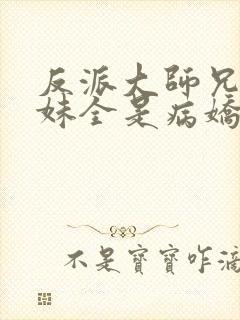 反派大師兄
妹全是病嬌
不是寶寶咋滴